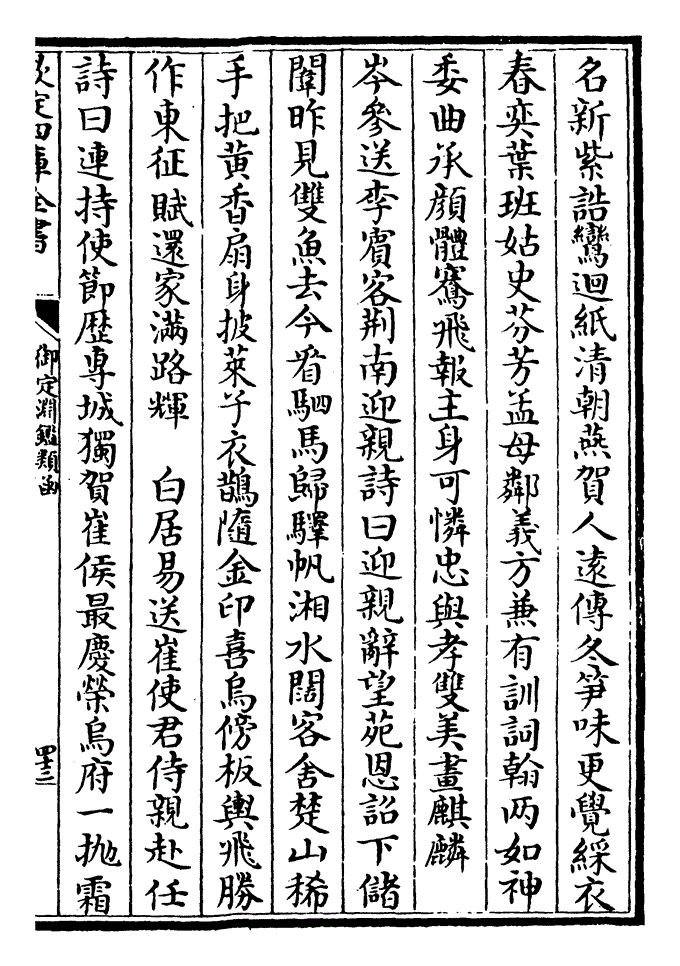 名新紫誥鸞迴紙清朝燕賀人遠傳冬笋味更覺綵衣
春奕葉班姑史芬芳孟母鄰義方兼有訓詞翰兩如神
委曲承顔體騫飛報主身可憐忠與孝雙美畫麒麟
岑參送李賔客荆南迎親詩曰迎親辭望苑恩詔下儲
闈昨見雙魚去今看駟馬歸驛帆湘水闊客舍楚山稀
手把黄香扇身披萊子衣鵲隨金印喜烏傍板輿飛勝
作東征賦還家滿路輝　白居易送崔使君侍親赴任
詩曰連持使節歴専城獨賀崔侯最慶榮烏府一抛霜
欽定四庫全書
御定淵鑑類函
四十三